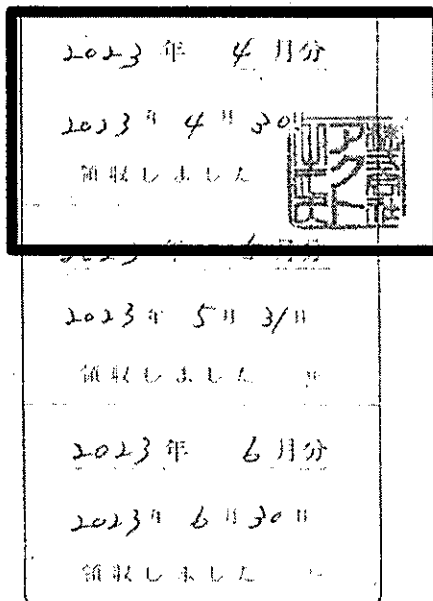 2023年 4月分
2023年 4月 30日
領収しました
アクト
2023年 月分
2023年 5月 31日
領収しました
2023年 6月分
2023年 6月 30日
領収しました